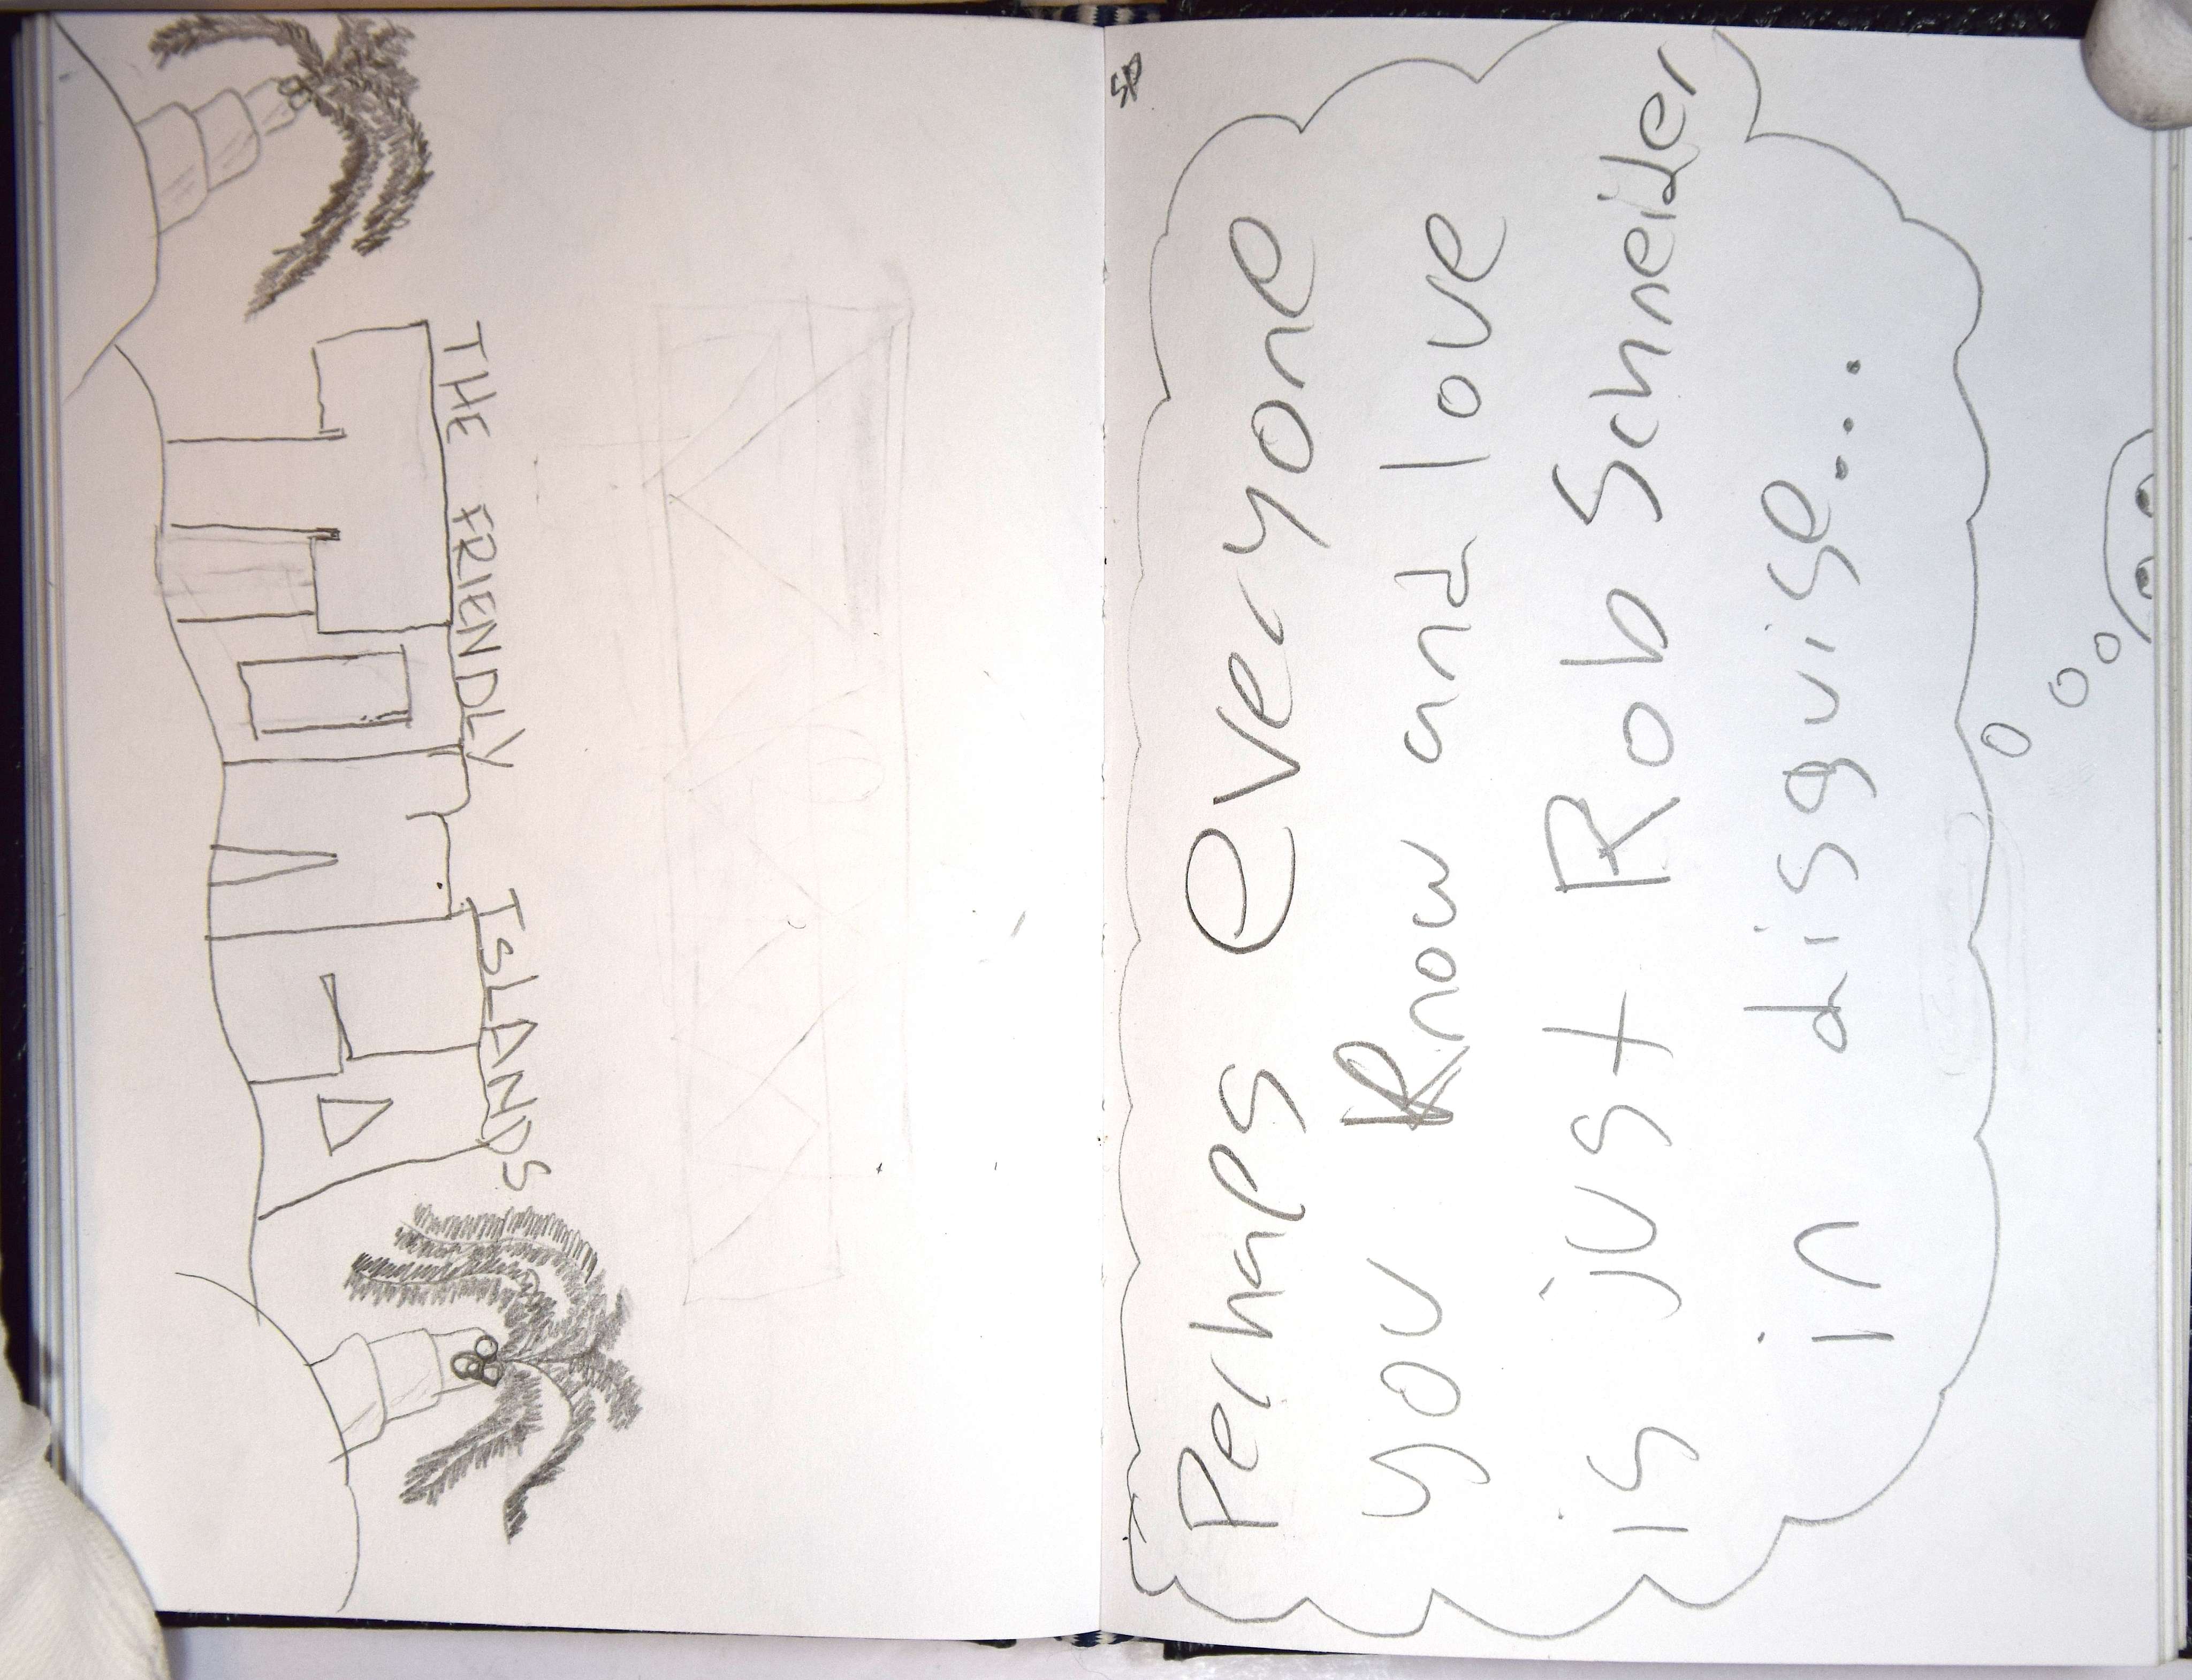 THE FRIENDLY ISLANDS
TONGA
Perhaps everyone
you Know and love
is just Rob Schneider
in disguise...